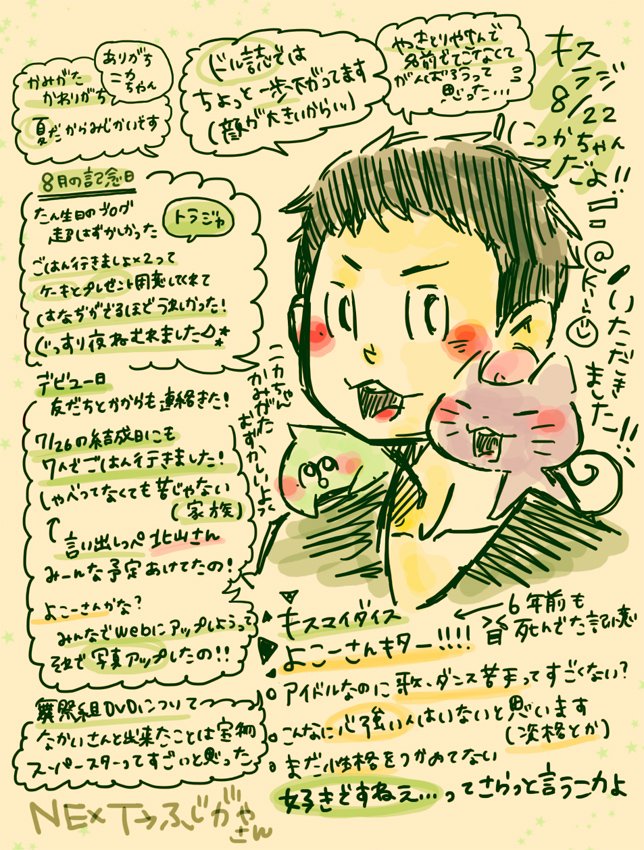 ありがち
ニカちゃん
かみがた
かおりがち
夏だからみじかいです
ドル誌では
ちょっと一歩下がってます
(顔が大きいから!!)
やっさとりやせんで
名前でてこなくて
がんばろうって
思った…
キス
ラジ
8/22
にっかちゃん
だよ!!
いただき
ました!!
8月の記念日
たん生日のブログ
超はずかしかった
トラジャ
ごはん行きましょ×2って
ケーキとプレゼント用意してくれて
はなぢがでるほどうれしかった!
ぐっすり夜ねむれました♪*
デビュー日
友だちとかからも連絡きた!
7/26の結成日にも
7人でごはん行きました!
しゃべってなくても苦じゃない
(家族)
↑
言い出しっぺ北山さん
みーんな予定あけてたの!
よこーさんがな?
みんなでwebにアップしようって
それで写真アップしたの!!
舞祭組DVDについて
なかいさんと出来たことは宝物
スーパースターってすごいと思った
NEXT→ふじがや
さん
ニカちゃん
かみがた
むずかしいよた
キスマイダイス
よこーさんキター!!!!
← 6年前も
死んでた記憶
アイドルなのに歌、ダンス苦手ってすごくない?
こんなに心強い人はいないと思います
(資格とか)
まだ性格をつかめてない
好きですねぇ…ってさらっと言うニカよ